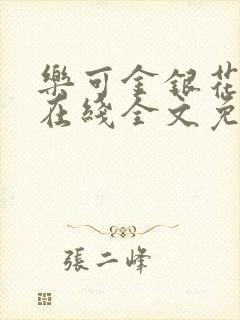 樂可金銀花
在綫全文免
張二峰